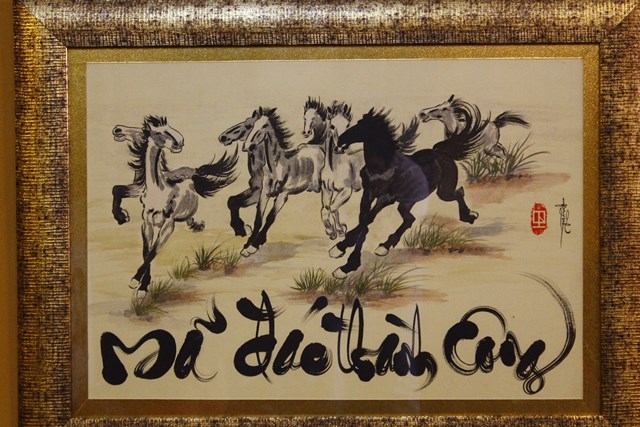 Mã đáo thành công